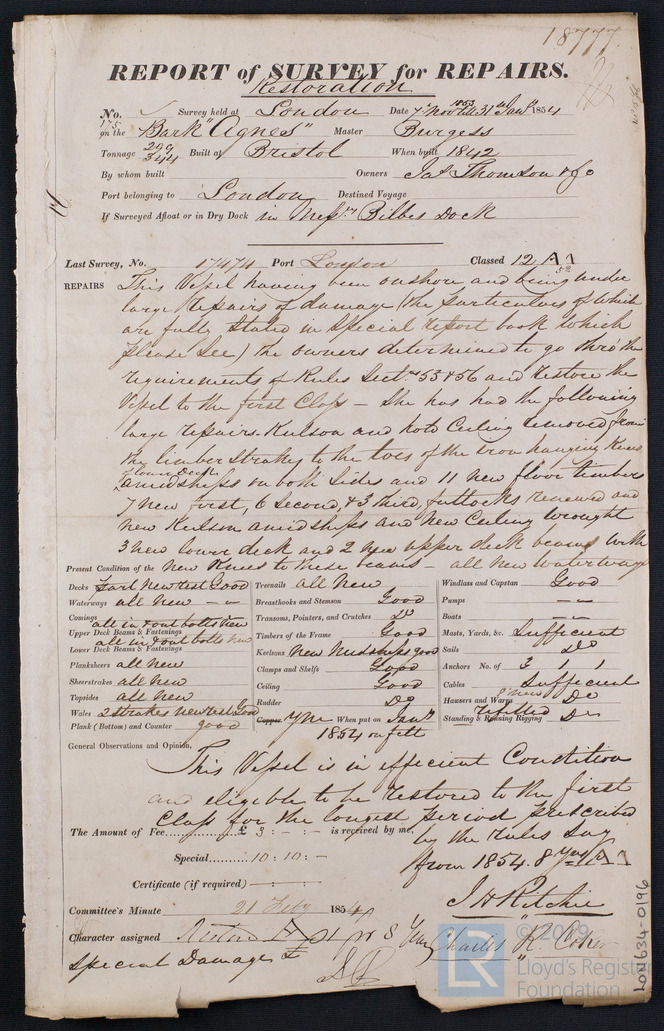 18777
REPORT of SURVEY for REPAIRS.
Restoration
No. 175 Survey held at London Date 7th Novr 1853 till 31st Jany 1854
on the Bark "Agnes" Master Burgess
Tonnage 299 344 Built at Bristol When built 1842
By whom built Owners Jas Thomson & Co
Port belonging to London Destined Voyage
If Surveyed Afloat or in Dry Dock in Messrs Bilbes Dock
Last Survey, No. 17474 Port London Classed 12 A 1
52
REPAIRS This Vessel having been onshore and being under
large repairs of damage (the particulars of which
are fully stated in Special report book which
please see) the owners determined to go thro the
requirements of Rules Sectns 53 & 56 and restore the
Vessel to the first Class – She has had the following
large repairs. Kulson and hold Ceiling removed from
the limber strakes to the toes of the iron hanging Knees
amidships on both sides and 11 new floor timbers
7 new first, 6 second, & 3 third, futtocks renewed and
new Kulson amidships and new Ceiling wrought
3 new lower deck and 2 new upper deck beams with
new Knees to these beams – all new Waterways
Present Condition of the
Decks part New rest Good
Waterways all New – –
Comings
all in & out bolts New
Upper Deck Beams & Fastenings
all in & out bolts new
Lower Deck Beams & Fastenings
Planksheers all new
Sheerstrakes all new
Topsides all new
Wales 2 strakes new rest Good
Plank (Bottom) and Counter good
Treenails all new
Breasthooks and Stemson Good
Transoms, Pointers, and Crutches Do
Timbers of the Frame Good
Keelsons New Midships good
Clamps and Shelfs Good
Ceiling Good
Rudder Do
Copper YM When put on Jany
1854 on felt
Windlass and Capstan Good
Pumps – –
Boats – –
Masts, Yards, &c. Sufficient
Sails Do
Anchors No. of 3 1 1
Cables Sufficient
Hausers and Warps new Do
Standing & Running Rigging Refitted Do
General Observations and Opinion,
This Vessel is in efficient Condition
and eligible to be restored to the first
Class for the longest period prescribed
by the rules Say
from 1854. 8 Years A 1
The Amount of Fee £ 3 : – : – is received by me,
Special 10 : 10 : –
Certificate (if required)
J H Ritchie
Committee's Minute 21 Feby 1854
Charles R Coker
Character assigned
Special Damage
© 2019
LR
Lloyd's Register
Foundation
LON634-0196